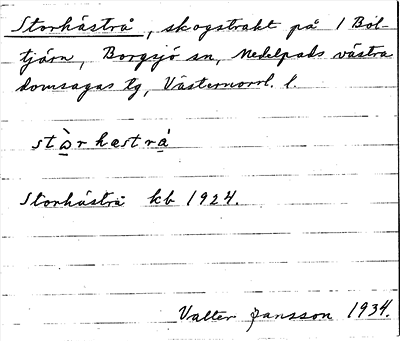 Storhästrå, skogstrakt på 1 Böl-
tjärn, Borgsjö sn, Medelpads västra
domsagas tg, Västernorrl. l.
stɷ̀r hæst rå
Storhästrå kb 1924.
Valter Jansson 1934.